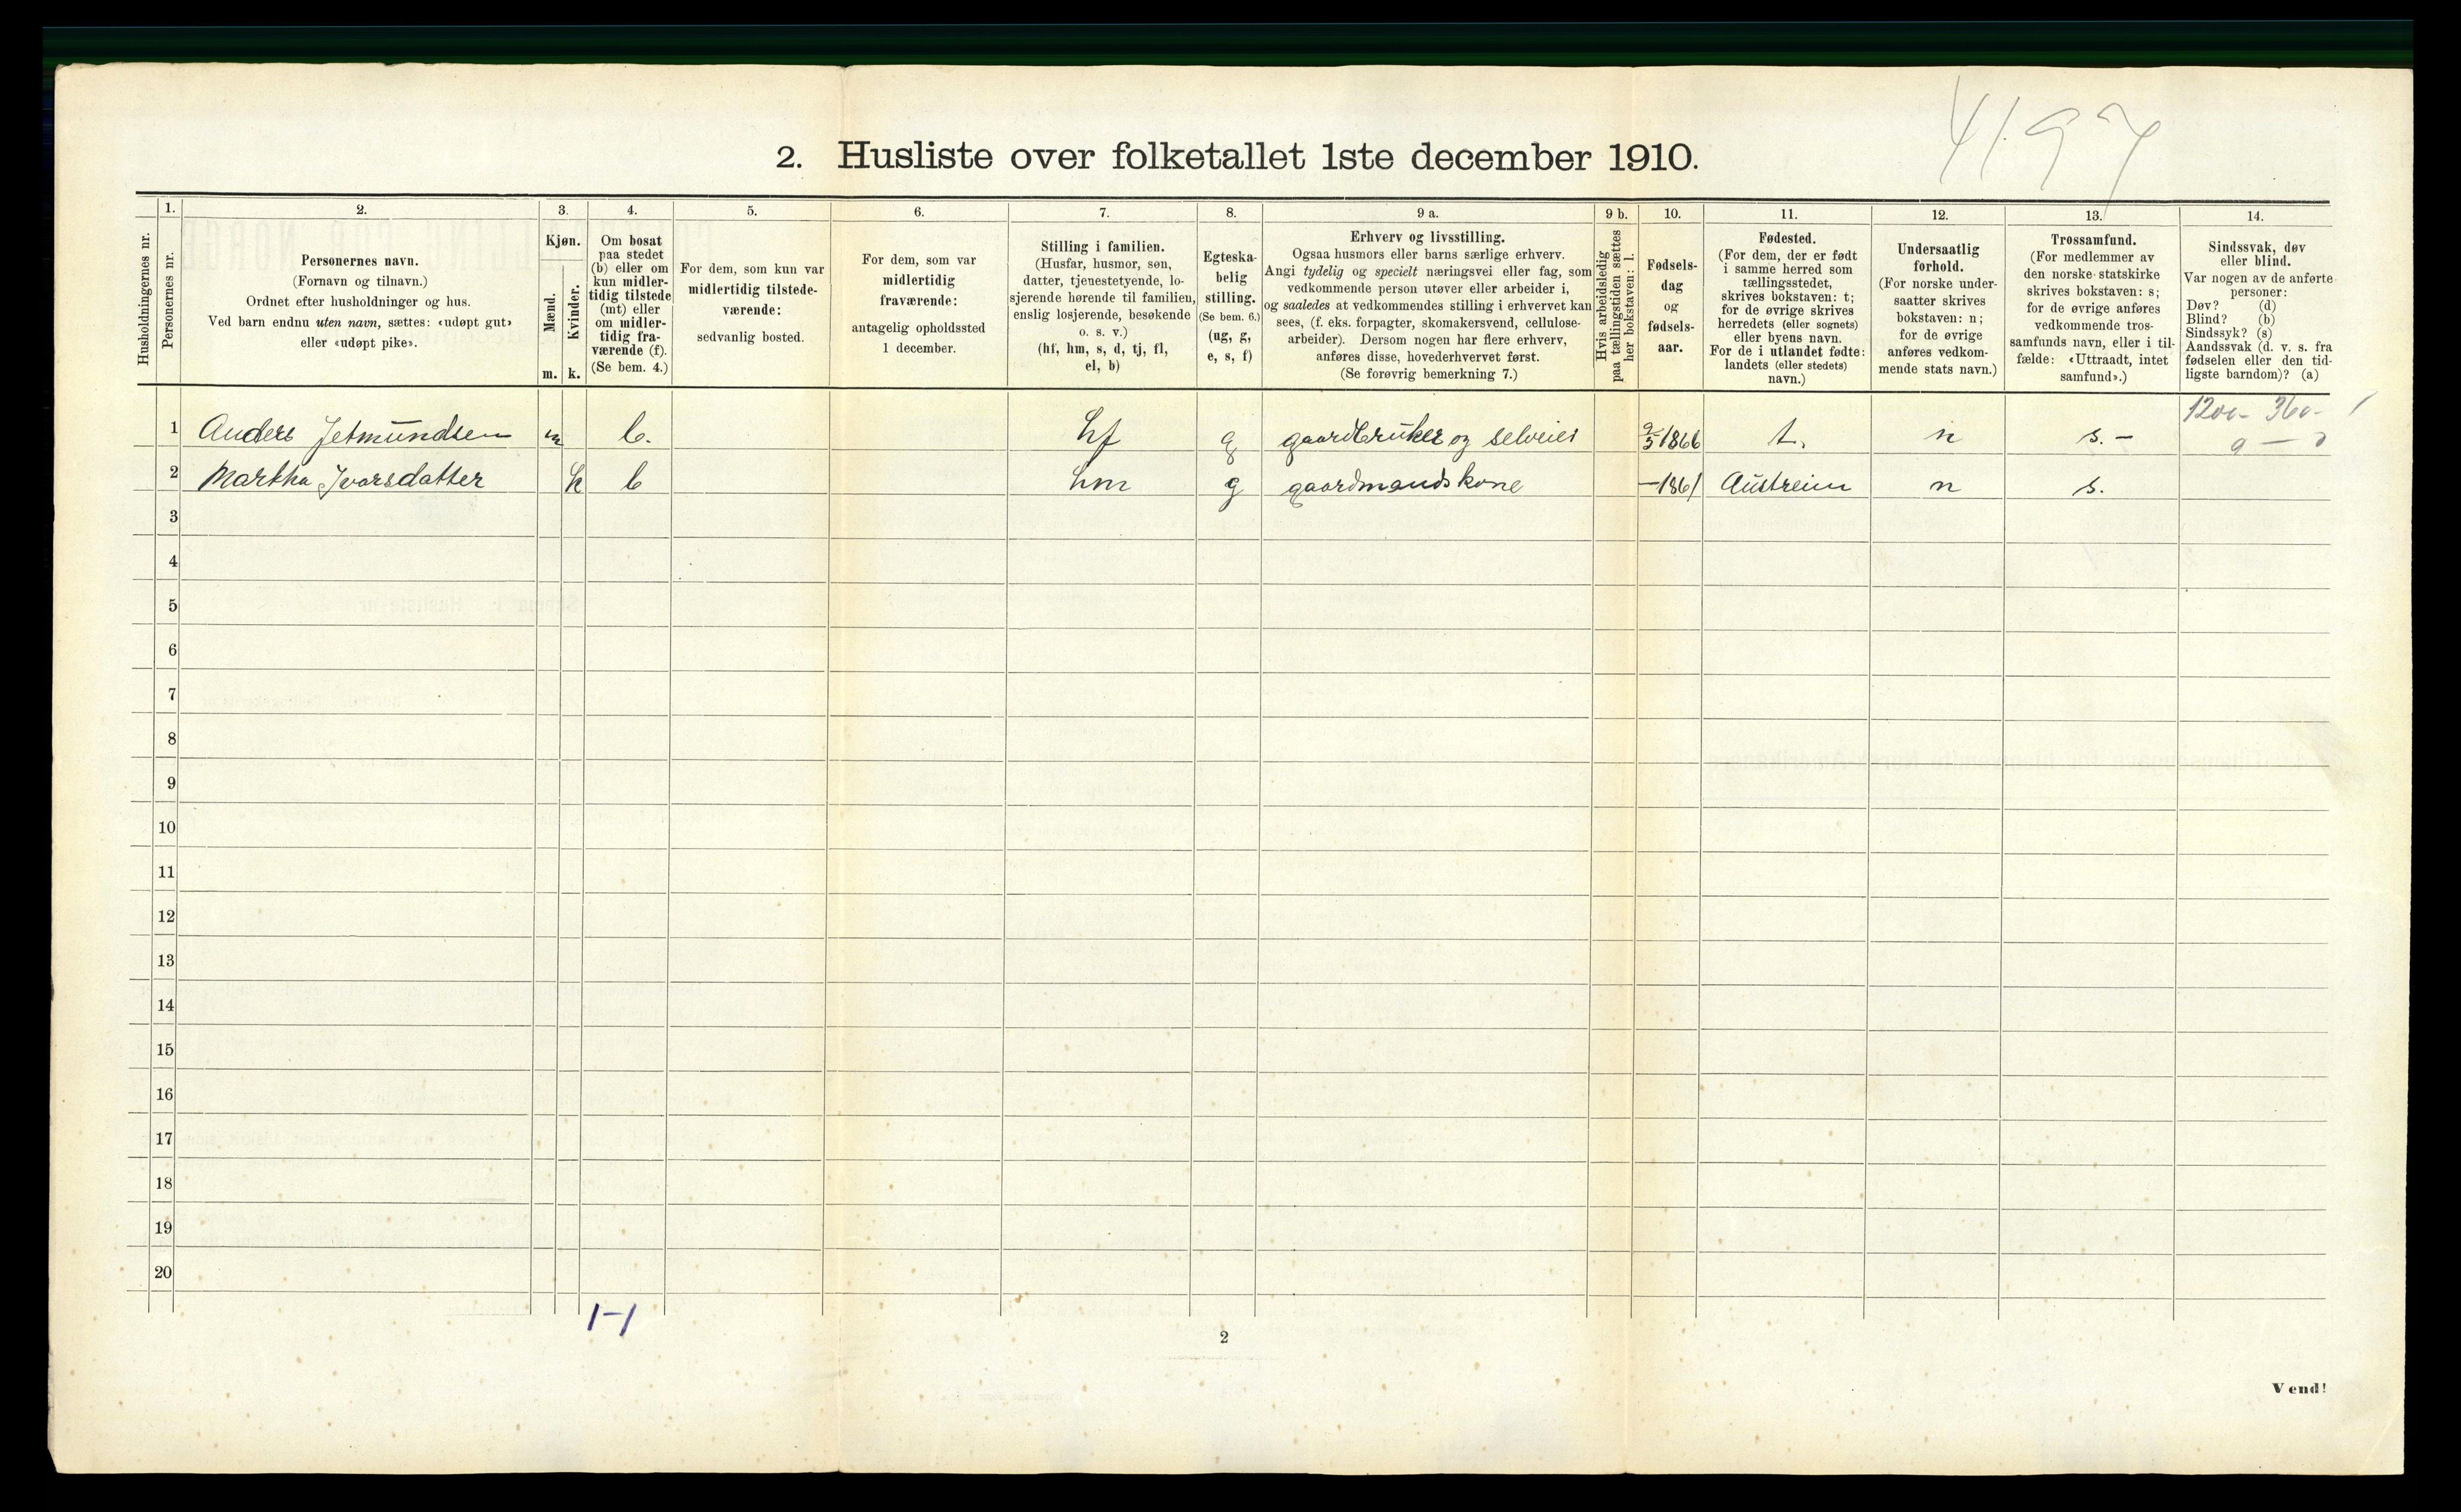 4197
2. Husliste over folketallet 1ste december 1910.
Husholdningernes nr.
1.
Personernes nr.
2.
Personernes navn.
(Fornavn og tilnavn.)
Ordnet efter husholdninger og hus.
Ved barn endnu uten navn, sættes: «udøpt gut»
eller «udøpt pike».
3.
Kjøn.
Mænd.
Kvinder.
m. k.
4.
Om bosat
paa stedet
(b) eller om
kun midler-
tidig tilstede
(mt) eller
om midler-
tidig fra-
værende (f).
(Se bem. 4.)
5.
For dem, som kun var
midlertidig tilstede-
værende:
sedvanlig bosted.
6.
For dem, som var
midlertidig
fraværende:
antagelig opholdssted
1 december.
7.
Stilling i familien.
(Husfar, husmor, søn,
datter, tjenestetyende, lo-
sjerende hørende til familien,
enslig losjerende, besøkende
o. s. v.)
(hf, hm, s, d, tj, fl,
el, b)
8.
Egteska-
belig
stilling.
(Se bem. 6.)
(ug, g,
e, s, f)
9 a.
Erhverv og livsstilling.
Ogsaa husmors eller barns særlige erhverv.
Angi tydelig og specielt næringsvei eller fag, som
vedkommende person utøver eller arbeider i,
og saaledes at vedkommendes stilling i erhvervet kan
sees, (f. eks. forpagter, skomakersvend, cellulose-
arbeider). Dersom nogen har flere erhverv,
anføres disse, hovederhvervet først.
(Se forøvrig bemerkning 7.)
9 b.
Hvis arbeidsledig
paa tællingstiden sættes
her bokstaven: l.
10.
Fødsels-
dag
og
fødsels-
aar.
11.
Fødested.
(For dem, der er født
i samme herred som
tællingsstedet,
skrives bokstaven: t;
for de øvrige skrives
herredets (eller sognets)
eller byens navn.
For de i utlandet fødte:
landets (eller stedets)
navn.)
12.
Undersaatlig
forhold.
(For norske under-
saatter skrives
bokstaven: n;
for de øvrige
anføres vedkom-
mende stats navn.)
13.
Trossamfund.
(For medlemmer av
den norske statskirke
skrives bokstaven: s;
for de øvrige anføres
vedkommende tros-
samfunds navn, eller i til-
fælde: «Uttraadt, intet
samfund».)
14.
Sindssvak, døv
eller blind.
Var nogen av de anførte
personer:
Døv? (d)
Blind? (b)
Sindssyk? (s)
Aandssvak (d. v. s. fra
fødselen eller den tid-
ligste barndom)? (a)
1200- 360- 1
1 Anders Jetmundsen m b. hf g gaardbruker og selveier 9/5 1866 t. n s. -
2 Martha Ivarsdatter k b hm g gaardmandskone - 1861 Austreim n s.
3
4
5
6
7
8
9
10
11
12
13
14
15
16
17
18
19
20
1-1
2
Vend!